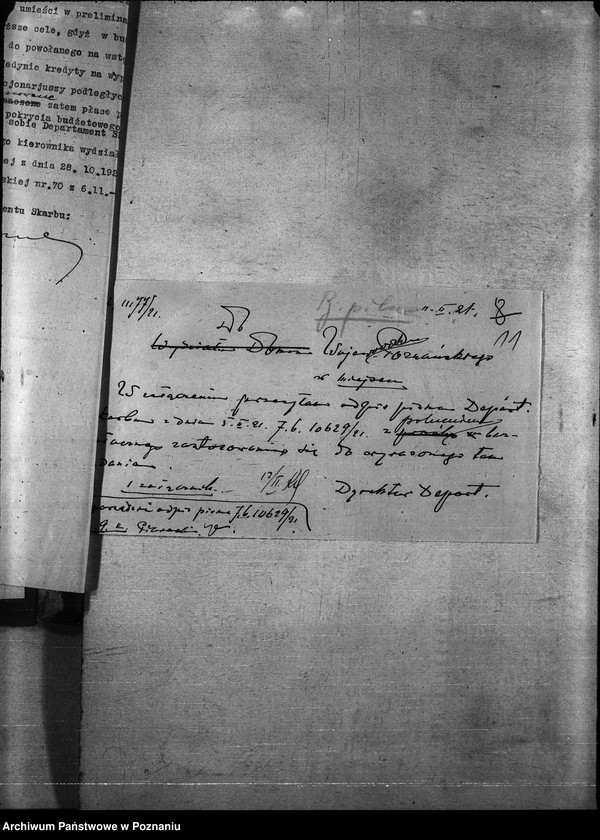 umieści w prelimina
ższe cele, gdyż w bu
do powołanego na wstę
edynie kredyty na wyp
cjonarjuszy podległyc
zatem płace p
pokrycia budżetowego
sobie Departament S
go kierownika wydział
ej z dnia 28. 10.192
skiej nr.70 z 6.11.-
entu Skarbu:
III 77/21.
B. pilne
11. II. 21.
8
11
Do
Wydziału Wojewody Poznańskiego
w miejscu
W załączeniu przesyłam odpis pisma Depart.
Skarbu z dnia 5.II.21. 7.b.10629/21. z poleceniem
zastosowania się do wyrażonego tam
żądania.
1 załącznik.
12/II
Dyrektor Depart.
odpis pisma 7.b.10629/21.
Archiwum Państwowe w Poznaniu